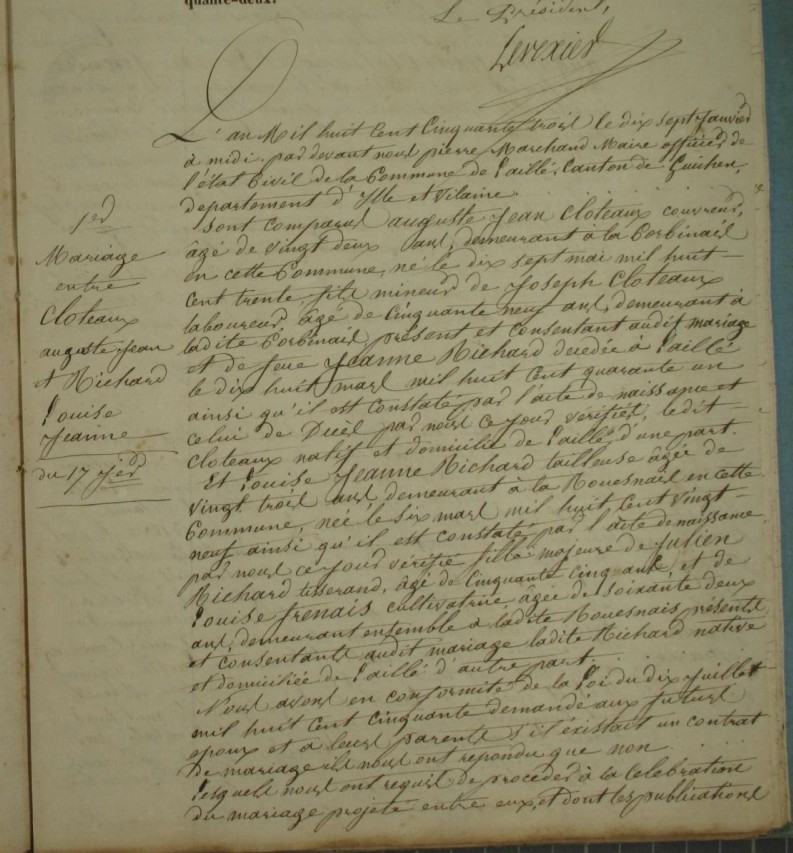 quante-deux.
Le Président,
L'an Mil huit Cent Cinquante trois le dix sept Janvier
à midi, par devant nous pierre Marchand Maire officier de
l'état Civil de la Commune de Laillé, Canton de Guichen,
departement d'Ille et Vilaine.
Sont comparus auguste Jean Cloteaux couvreur,
âgé de vingt deux ans, demeurant à la Corbinais
en cette Commune, né le dix sept mai mil huit
cent trente, fils mineur de Joseph Cloteaux
laboureur, âgé de Cinquante neuf ans, demeurant à
ladite Corbinais présent et consentant audit mariage
et de feue Jeanne Richard decedée à Laillé
le dix huit mars mil huit cent quarante un
ainsi qu'il est constaté par l'acte de naissance et
celui de Décès par nous ce jour vérifiés, ledit
Cloteaux natif et domicilié de Laillé d'une part.
Et Louise Jeanne Richard tailleuse âgée de
vingt trois ans demeurant à la Rouesnais en cette
Commune, née le six mars mil huit Cent vingt
neuf ainsi qu'il est constaté par l'acte de naissance
par nous ce jour vérifié fille majeure de Julien
Richard tisserand, âgé de Cinquante cinq ans, et de
Louise frenais cultivatrice âgée de soixante deux
ans, demeurant ensemble à ladite Rouesnais présents
et consentants audit mariage ladite Richard native
et domiciliée de Laillé d'autre part.
Nous avons en conformité de la Loi du dix Juillet
mil huit cent cinquante demandé aux futurs
epoux et à leurs parents s'il éxistait un contrat
De mariage ils nous ont repondu que non.
Lesquels nous ont requis de proceder à la Celebration
du mariage projeté entre eux, et dont les publications
1er
Mariage
entre
Cloteaux
auguste Jean
et Richard
Louise
Jeanne
du 17 Jer